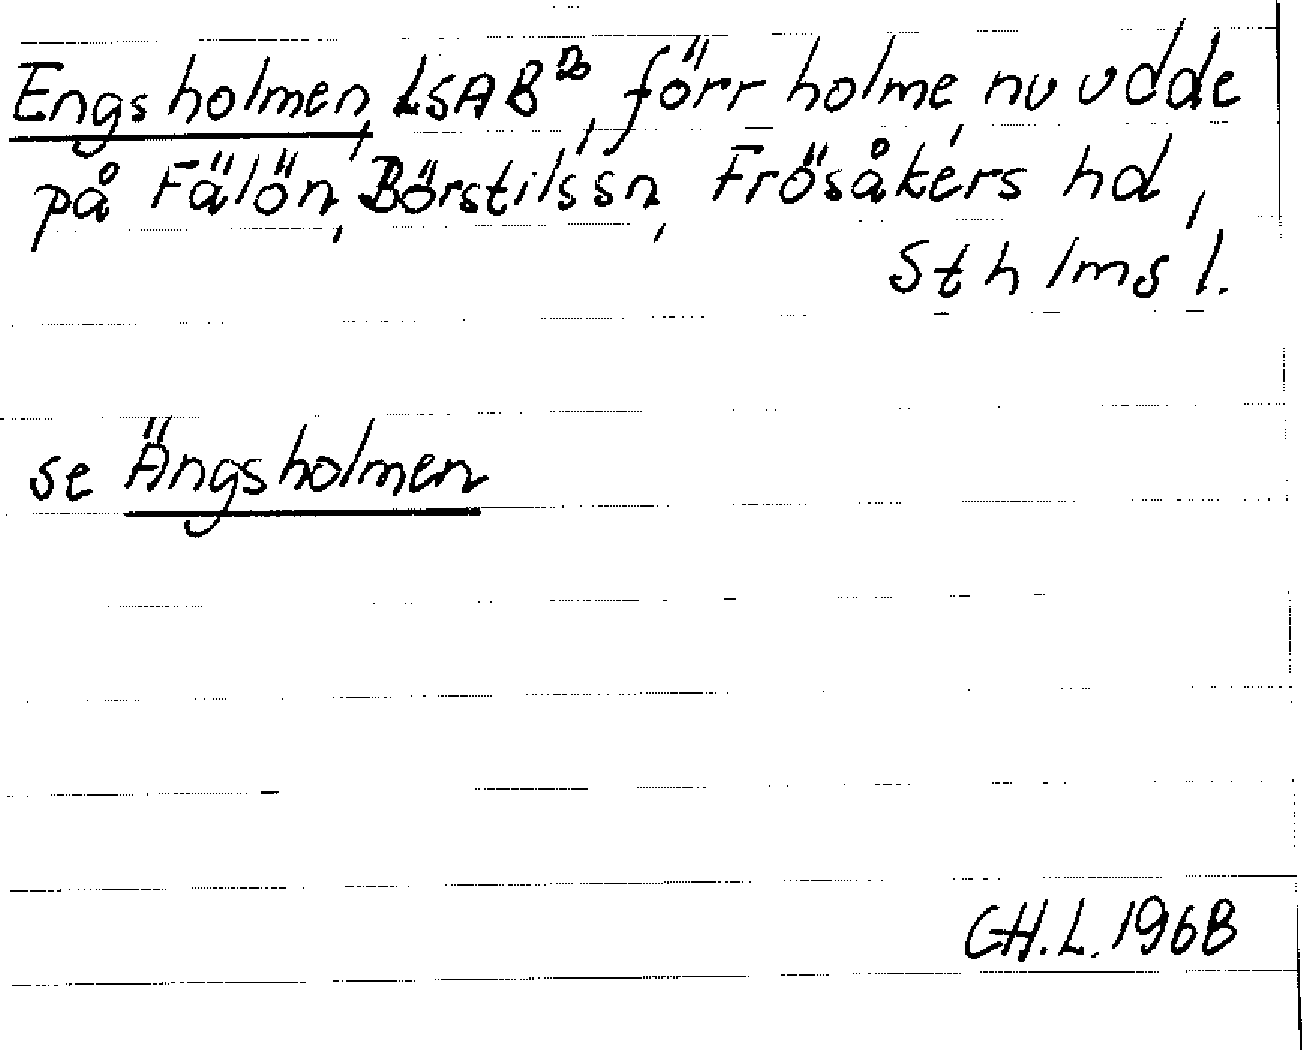 Engsholmen, LSA B²⁰, förr holme, nu udde
på Fälön, Börstils sn, Frösåkers hd,
Sthlms l.
se Ängsholmen
CH.L. 1968